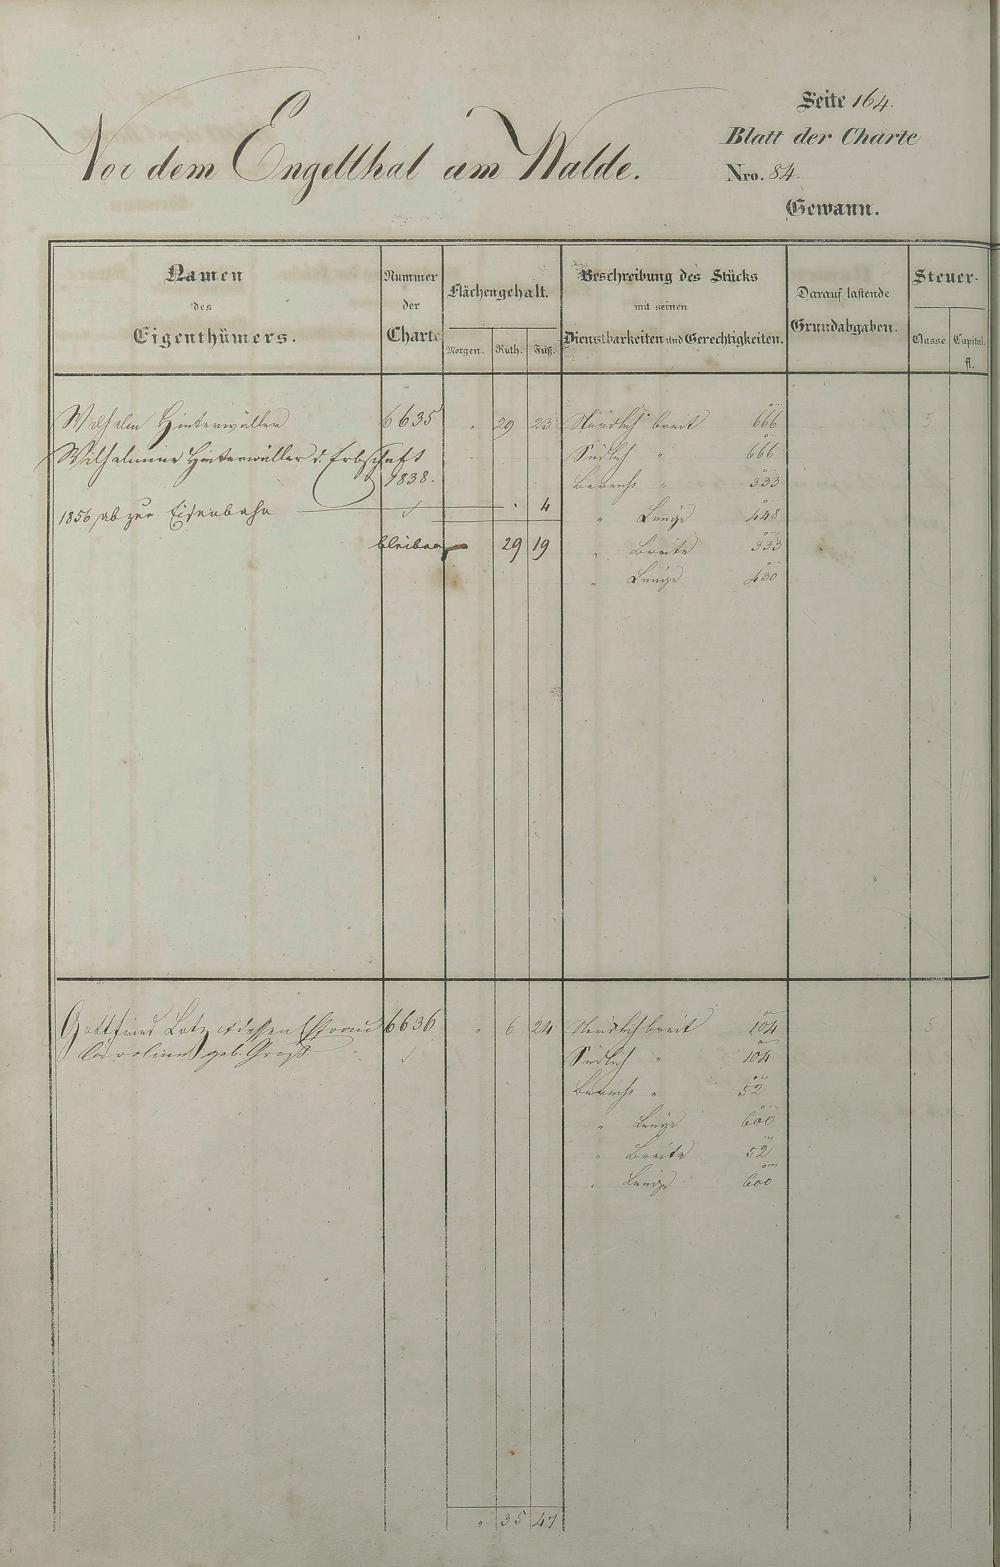 Seite 164.
Blatt der Charte
Vor dem Engelthal am Walde.
Nro. 84.
Gewann.
Namen des Eigenthümers.
Nummer der Charte
Flächengehalt.
Morgen. Ruth. Fuß.
Beschreibung des Stücks mit seinen Dienstbarkeiten und Gerechtigkeiten.
Darauf lastende Grundabgaben.
Steuer-
Classe. Capital. fl.
Wilhelm Hinterwäller 6635 " 29 23 Nördlich breit 666 5
Wilhelmine Hinterwäller d. Erbschaft Südlich " 666
1838. " 333
1856 ab zur Eisenbahn " 4 " Länge 448
bleiben 29 19 " Breite 333
" Länge 430
Gottfried Lotz & dessen Ehefrau 6636 " 6 24 Nördlich breit 104 5
Caroline geb. Groß Südlich " 104
" 52
" Länge 600
" Breite 52
" Länge 600
" 35 47